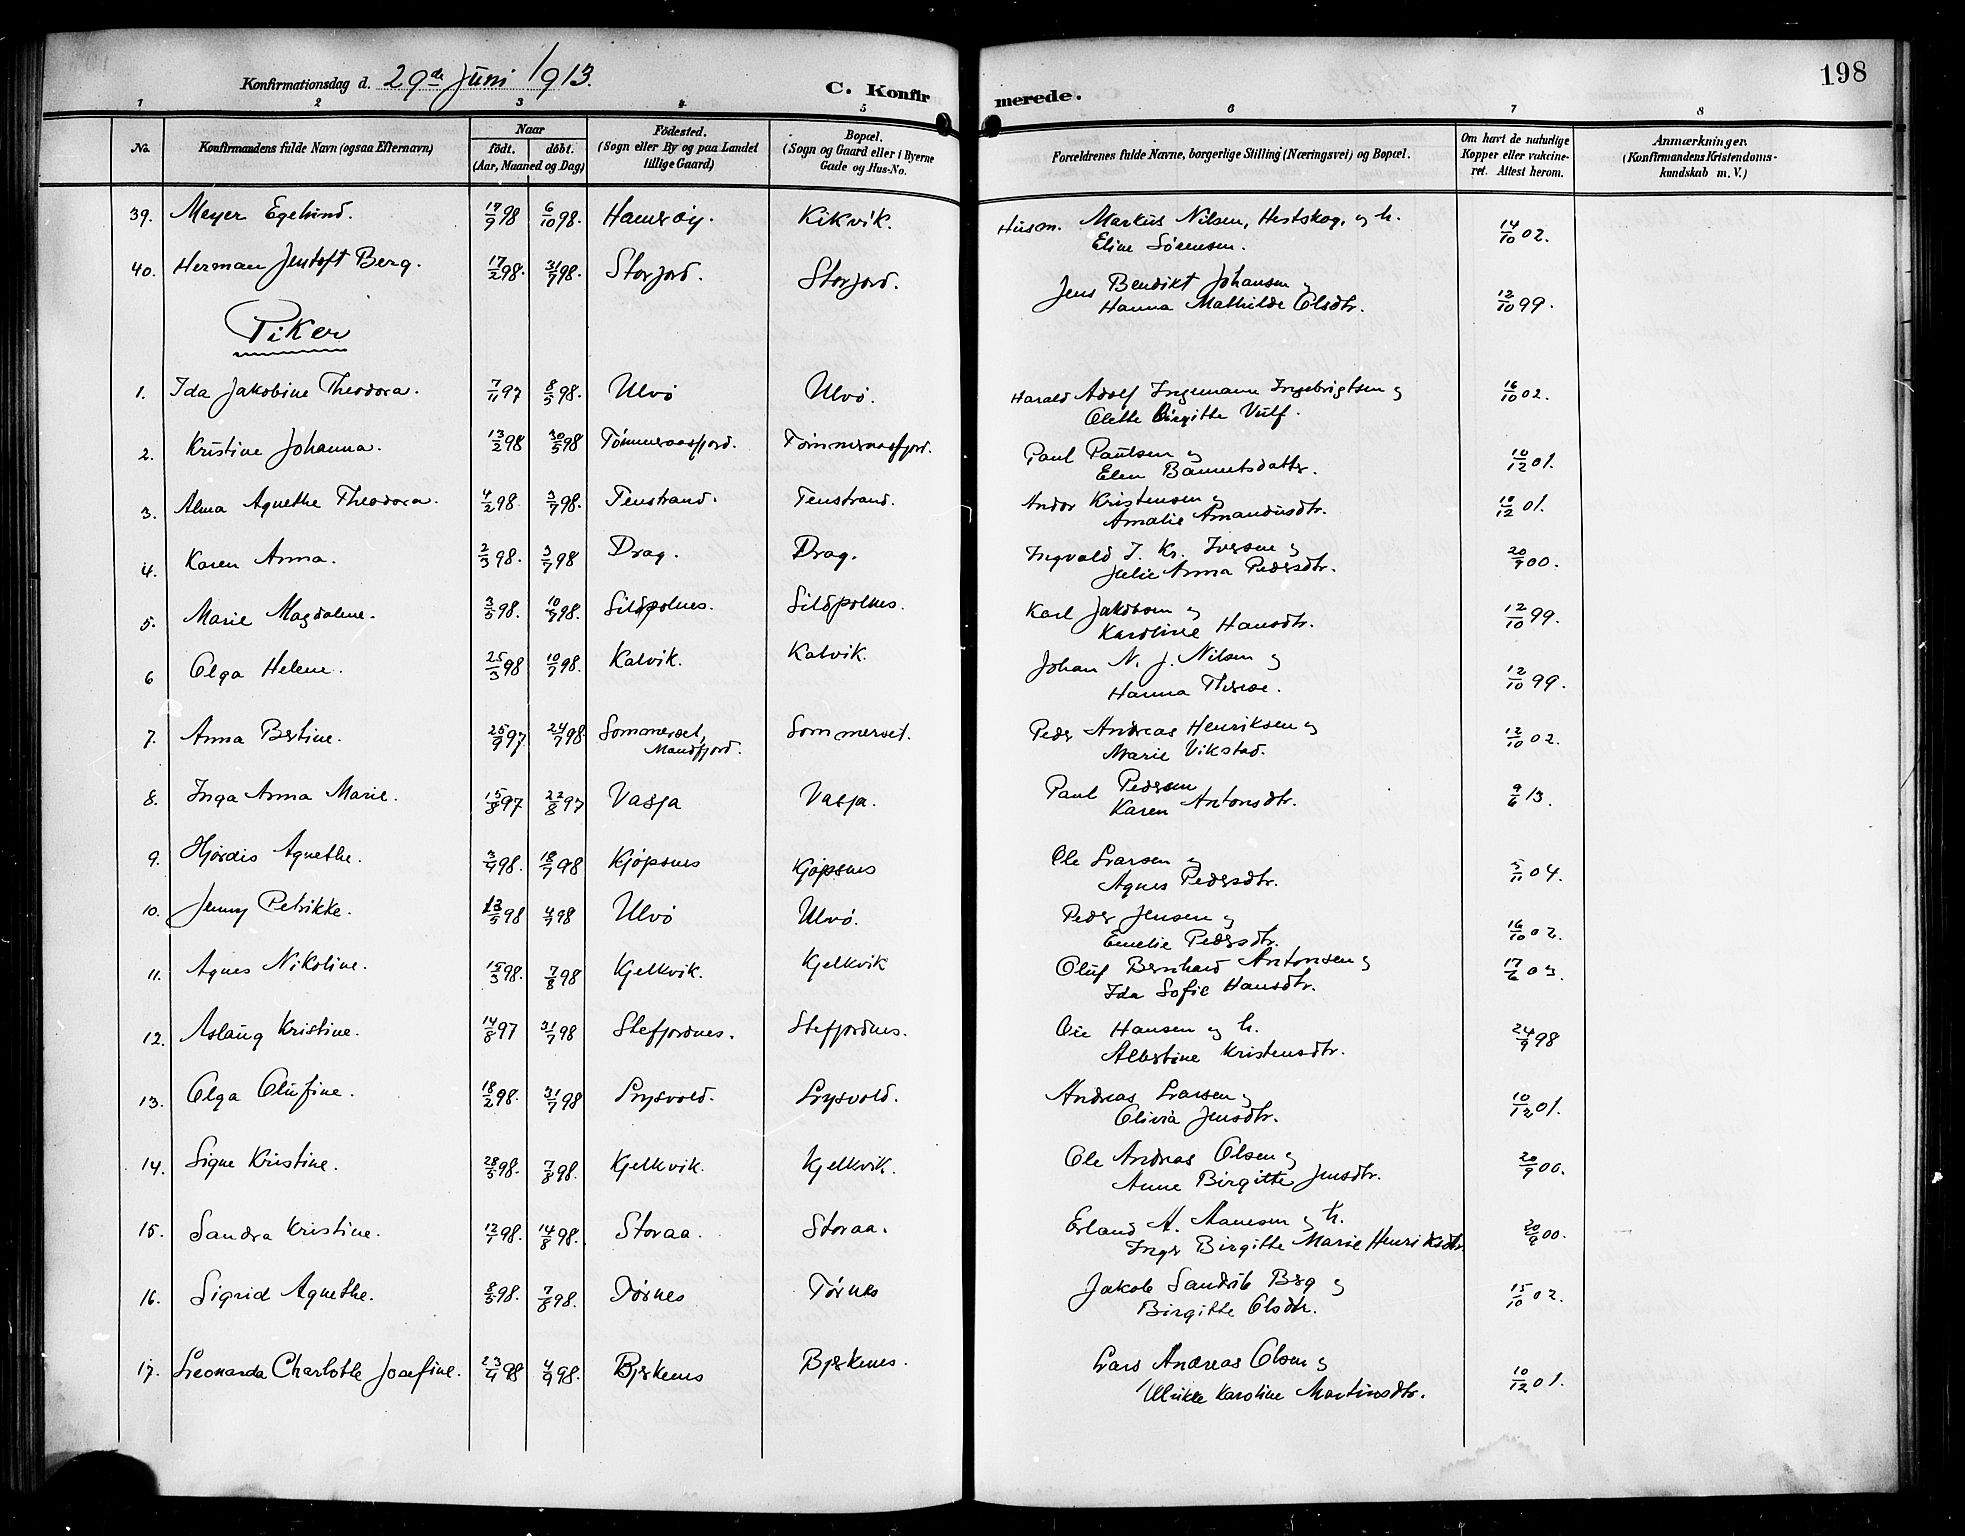 198
Konfirmationsdag d. 29de Juni 1913.
C. Konfirmerede.
1 2 3 4 5 6 7 8
No.
Konfirmandens fulde Navn (ogsaa Efternavn)
Naar
født. døbt.
(Aar, Maaned og Dag)
Fødested.
(Sogn eller By og paa Landet
tillige Gaard)
Bopæl.
(Sogn og Gaard eller i Byerne
Gade og Hus-No.
Forældrenes fulde Navne, borgerlige Stilling (Næringsvei) og Bopæl.
Om havt de naturlige
Kopper eller vakcine-
ret. Attest herom.
Anmærkninger.
(Konfirmandens Kristendoms-
kundskab m. V.)
39. Meyer Egelund. 17/9 98 6/10 98. Hamerøy. Kikvik. Husm. Markus Nilsen, Hestskog, og h. 14/10 02.
Eline Sörensen.
40. Herman Jentoft Berg. 17/2 98. 31/7 98. Storjord. Storjord. Jens Bendikt Johansen og 12/10 99.
Hanna Mathilde Olsdtr.
Piker
1. Ida Jakobine Theodora. 7/11 97 8/5 98. Ulvö Ulvö. Harald Adolf Ingemann Ingebrigtsen og 16/10 02.
Olette Birgitte Vulf.
2. Kristine Johanna. 13/2 98 30/5 98 Tömmeraasfjord. Tömmeraasfjord. Paul Paulsen og 10/12 01.
Elen
3. Alma Agnethe Theodora. 4/2 98. 3/7 98. Fenstrand. Fenstrand. Andor Kristensen og 10/12 01.
Amalie Amandusdtr.
4. Karen Anna. 2/3 98. 3/7 98 Drag. Drag. Ingvald J. Kr. Iversen og 20/9 00.
Julie Anna Pedersdtr.
5. Marie Magdalene. 3/5 98. 10/7 98. Sildpolnes. Sildpolnes. Karl Jakobsen og 12/10 99.
Karoline Hansdtr.
6 Olga Helene. 25/3 98 10/7 98. Kalvik. Kalvik. Johan N. J. Nilsen og 12/10 99.
Hanna Therese.
7. Anna Bertine. 25/9 97 24/7 98 Sommerset, Sommerset. Peder Andreas Henriksen og 12/10 02.
Mandfjord. Marie Vikstad.
8. Inga Anna Marie. 15/8 97 22/8 97 Vasja Vasja. Paul Pedersen 9/6 13.
Karen Antonsdtr.
9. Hjördis Agnethe. 3/4 98. 18/7 98 Kjöpsnes Kjöpsnes Ole Larsen og 5/11 04.
Agnes Pedersdtr.
10. Jenny Petrikke. 13/5 98 4/7 98 Ulvö Ulvö. Peder Jensen og 16/10 02.
Emelie Pedersdtr.
11. Agnes Nikoline. 15/3 98. 7/8 98 Kjelkvik. Kjelkvik Oluf Bernhard Antonsen og 17/6 03.
Ida Sofie Hansdtr.
12. Aslaug Kristine. 14/8 97 31/7 98 Stefjordnes. Stefjordnes. Ole Hansen og h. 24/9 98
Albertine Kristensdtr.
13. Olga Olufine. 18/2 98. 31/7 98 Lysvold. Lysvold. Andreas Larsen og 10/12 01.
Olivia Jensdtr.
14. Signe Kristine. 28/5 98. 7/8 98. Kjelkvik. Kjelkvik. Ole Andreas Olsen og 20/9 00.
Anne Birgitte Jensdtr.
15. Sandra Kristine. 12/1 98. 14/8 98. Storaa. Storaa. Erland A. Aanesen og h. 20/9 00.
Inger Birgitte Marie Henriksdtr.
16. Sigrid Agnethe. 8/5 98. 7/8 98. Tørnes Törnes Jakob Sandrik Berg og 15/10 02.
Birgitte Olsdtr.
17. Leonarda Charlotte Josefine. 23/4 98 4/9 98. Bjerkenes Bjerkenes. Lars Andreas Olsen og 10/12 01.
Ulrikke Karoline Martinsdtr.